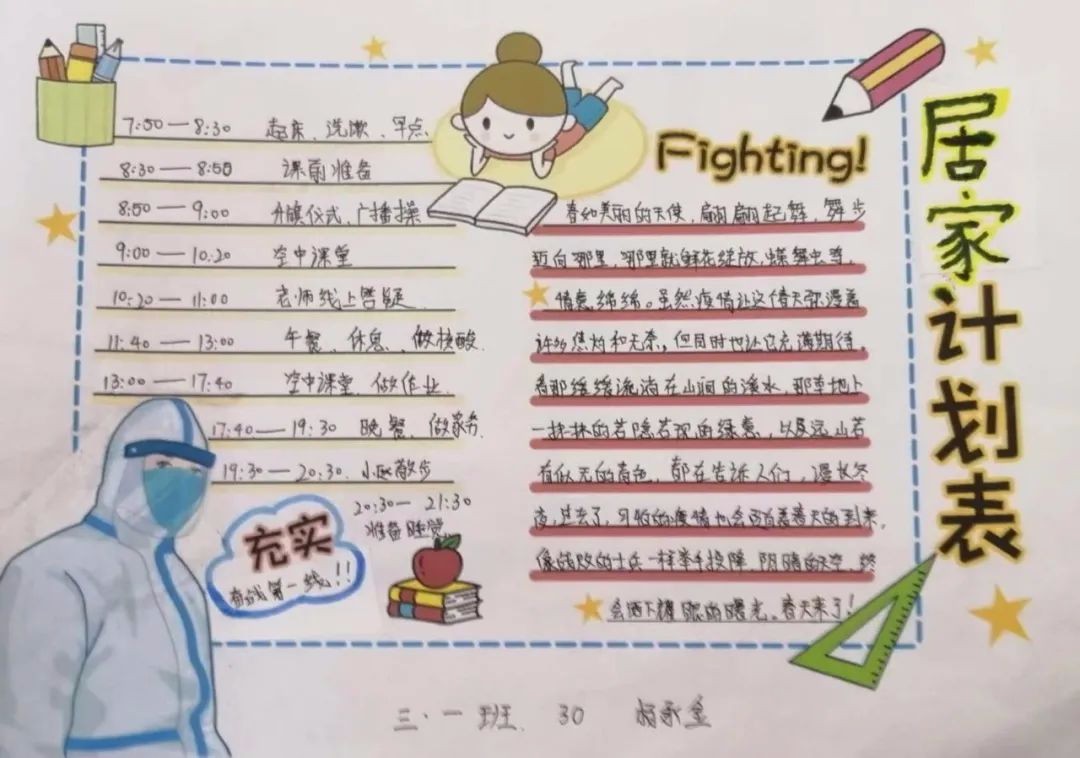 居家计划表
Fighting!
7:50—8:30 起床、洗漱、早点
8:30—8:50 课前准备
8:50—9:00 升旗仪式、广播操
9:00—10:20 空中课堂
10:20—11:00 老师线上答疑
11:40—13:00 午餐、休息、做核酸
13:00—17:40 空中课堂、做作业
17:40—19:30 晚餐、做家务
19:30—20:30 小区散步
20:30—21:30
准备睡觉
充实
奋战第一线!!
春如美丽的天使,翩翩起舞,舞步
迈向那里,那里就鲜花绽放,蝶舞虫鸣,
情意绵绵。虽然疫情让这个春天弥漫着
许多焦灼和无奈,但同时也让它充满期待。
看那缓缓流淌在山涧的溪水,那草地上
一抹抹的若隐若现的绿意,以及远山若
有似无的青色,都在告诉人们,漫长冬
夜,过去了,可怕的疫情也会随着春天的到来,
像战败的士兵一样举手投降,阴晴的天空,终
会洒下耀眼的曙光。春天来了!
三、一班、30